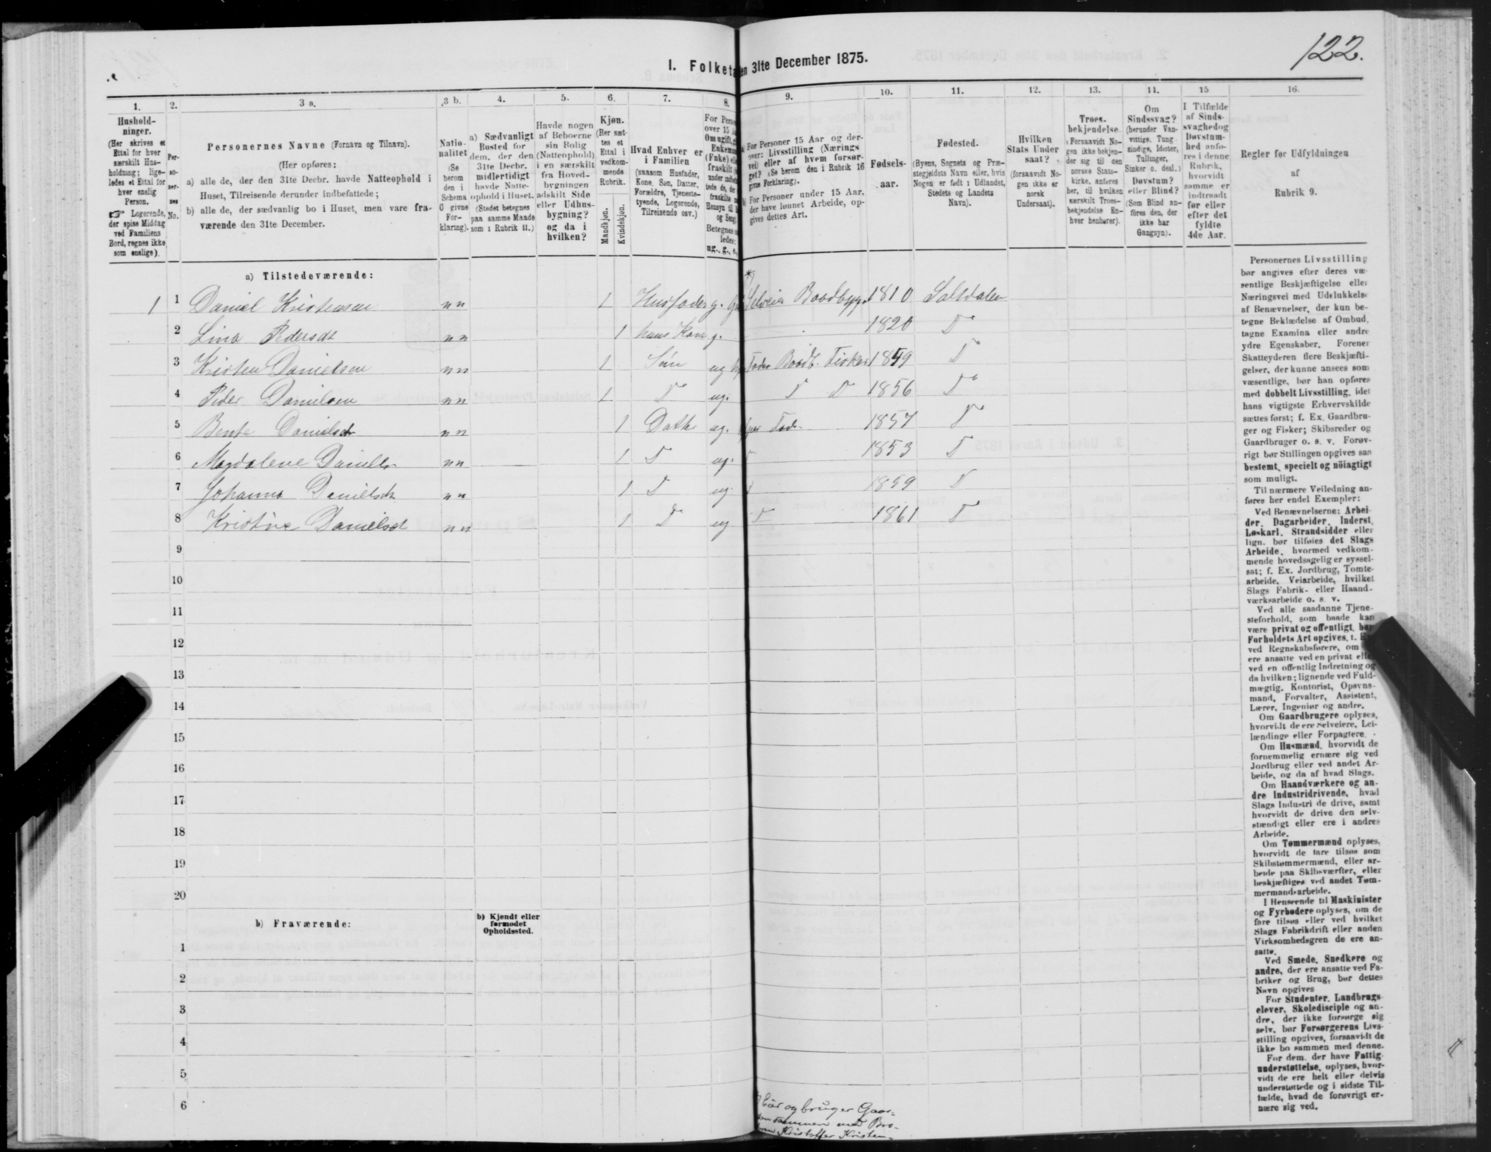 122.
I. Folketa en 31te December 1875.
1. 2. 3 a. 3 b. 4. 5. 6. 7. 8. 9. 10. 11. 12. 13. 14. 15 16.
Hushold-
ninger.
(Her skrives et
Ettal for hver
særskilt Hus-
holdning; lige-
ledes et Ettal for
hver enslig
Person.
☞ Logerende,
der spise Middag
ved Familiens
Bord, regnes ikke
som enslige).
Per-
so-
ner-
nes
No.
Personernes Navne (Fornavn og Tilnavn).
(Her opføres:
a) alle de, der den 31te Decbr. havde Natteophold i
Huset, Tilreisende derunder indbefattede;
b) alle de, der sædvanlig bo i Huset, men vare fra-
værende den 31te December.
Natio-
nalitet
(Se
herom
den i
Schema
O givne
For-
klaring).
a) Sædvanligt
Bosted for
dem, der den
31te Decbr.
midlertidigt
havde Natte-
ophold i Huset.
(Stedet betegnes
paa samme Maade
som i Rubrik 11.)
Havde nogen
af Beboerne
sin Bolig
(Natteophold)
i en særskilt
fra Hoved-
bygningen
adskilt Side
eller Udhus-
bygning?
og da i
hvilken?
Kjøn.
(Her sæt-
tes et
Ettal i
vedkom-
mende
Rubrik.
Mandkjøn.
Kvindekjøn.
Hvad Enhver er
i Familien
(saasom Husfader,
Kone, Søn, Datter,
Forældre, Tjeneste-
tyende, Logerende,
Tilreisende osv.)
For Perso
over 15
Om ugift,
Enkem
(Enke) el
fraskilt
Betegnes
ledes:
ug., g., e.,
For Personer 15 Aar og der-
over: Livsstilling (Nærings
vei) eller af hvem forsør-
get? (Se herom den i Rubrik 16
givne Forklaring).
For Personer under 15 Aar,
der have lønnet Arbeide, op-
gives dettes Art.
Fødsels-
aar.
Fødested.
(Byens, Sognets og Præ-
stegjeldets Navn eller, hvis
Nogen er født i Udlandet,
Stedets og Landets
Navn).
Hvilken
Stats Under
saat?
(foraavidt No-
gen ikke er
norsk
Undersaat).
Troes-
bekjendelse.
(Forsaavidt No-
gen ikke bekjen-
der sig til den
norske Stats-
kirke, anføres
her, til hvilken
særskilt Troes-
bekjendelse En-
hver henhører).
Om
Sindssvag?
(herunder Van-
vittige, Tung-
sindige, Idioter,
Tullinger,
Sinker o. desl.)
Døvstum?
eller Blind?
(Som Blind an-
føres den, der
ikke har
Gangsyn).
I Tilfælde
af Sinds-
svaghed og
Døvstum-
hed anfø-
res i denne
Rubrik,
hvorvidt
samme er
indtraadt
før eller
efter det
fyldte
4de Aar.
Regler før Udfyldningen
af
Rubrik 9.
a) Tilstedeværende:
1 1 Daniel Kristensen nn 1 Husfader g. Selveier 1810 Saltdalen
2 Lina Pedersdt nn 1 hans Kone g. 1820 D
3 Kristen Danielsen nn 1 Søn ug Fisker 1849 D
4 Peder Danielsen nn 1 D ug. D D 1856 D
5 Danielsdt nn 1 Datter ug. 1857 D
6 Magdalene Danielsdt nn 1 D ug. 1853 D
7 Johanna Danielsdt nn 1 D ug. 1859 D
8 Kristine Danielsdt nn 1 D ug D 1861 D
9
10
11
12
13
14
15
16
17
18
19
20
b) Fraværende:
b) Kjendt eller
formodet
Opholdssted.
1
2
3
4
5
6
Eier og bruger Gaar-
sammen med Bro-
Kristoffer Kristen-
Personernes Livsstilling
bør angives efter deres væ-
sentlige Beskjæftigelse eller
Næringsvei med Udelukkelse
af Benævnelser, der kun be-
tegne Beklædelse af Ombud,
tagne Examina eller andre
ydre Egenskaber. Forener
Skatteyderen flere Beskjæfti-
gelser, der kunne ansees som
væsentlige, bør han opføres
med dobbelt Livsstilling, idet
hans vigtigste Erhvervskilde
sættes først; f. Ex. Gaardbru-
ger og Fisker; Skibsreder og
Gaardbruger o. s. v. Forøv-
rigt bør Stillingen opgives saa
bestemt, specielt og nöiagtigt
som muligt.
Til nærmere Veiledning an-
føres her endel Exempler:
Ved Benævnelserne: Arbei-
der, Dagarbeider, Inderst,
Løskarl, Strandsidder eller
lign. bør tilføies det Slags
Arbeide, hvormed vedkom-
mende hovedsagelig er syssel-
sat; f. Ex. Jordbrug, Tomte-
arbeide, Veiarbeide, hvilket
Slags Fabrik- eller Haand-
værksarbeide o. s. v.
Ved alle saadanne Tjene-
steforhold, som baade kan
være privat og offentligt, bør
Forholdets Art opgives, t.
ved Regnskabsførere, om
ere ansatte ved en privat el
ved en offentlig Indretning og
da hvilken; lignende ved Fuld-
mægtig, Kontorist, Opsyns-
mand, Forvalter, Assistent,
Lærer, Ingeniør og andre.
Om Gaardbrugere oplyses,
hvorvidt de ere Selveiere, Lei-
lændinge eller Forpagtere.
Om Husmænd, hvorvidt de
fornemmelig ernære sig ved
Jordbrug eller ved andet Ar-
beide, og da af hvad Slags.
Om Haandværkere og an-
dre Industridrivende, hvad
Slags Industri de drive, samt
hvorvidt de drive den selv-
stændigt eller ere i andres
Arbeide.
Om Tømmermænd oplyses,
hvorvidt de fare tilsøs som
Skibstømmermænd, eller ar-
beide paa Skibsværfter, eller
beskjæftiges ved andet Tøm-
mermandsarbeide.
I Henseende til Maskinister
og Fyrbødere oplyses, om de
fare tilsøs eller ved hvilket
Slags Fabrikdrift eller anden
Virksomhedsgren de ere an-
satte.
Ved Smede, Snedkere og
andre, der ere ansatte ved Fa-
briker og Brug, bør dettes
Navn opgives
For Studenter, Landbrugs-
elever, Skoledisciple og an-
dre, der ikke forsørge sig
selv, bør Forsørgerens Livs-
stilling opgives, forsaavidt de
ikke bo sammen med denne.
For dem, der have Fattig-
understøttelse, oplyses, hvor-
vidt de ere helt eller delvis
understøttede og i sidste Til-
fælde, hvad de forøvrigt er-
nære sig ved.